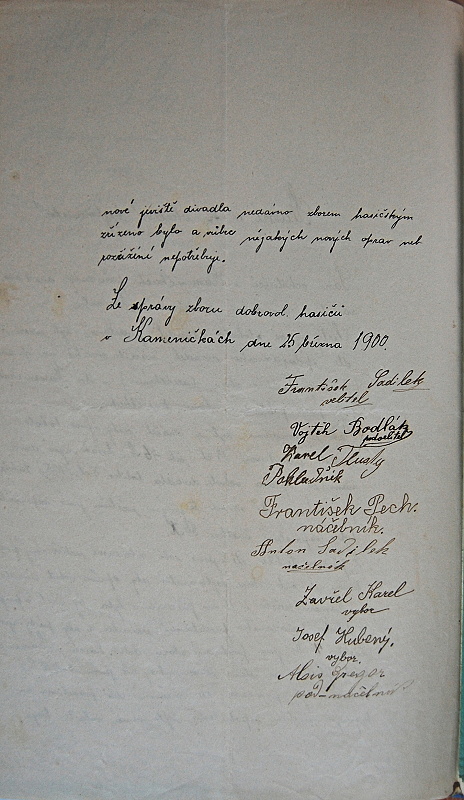 nové jeviště divadla nedávno sborem hasičským
zřízeno bylo a vůbec nějakých nových oprav neb
rozšíření nepotřebuje.
Ze správy sboru dobrovol. hasičů
v Kameničkách dne 25 března 1900.
František Sadilek
velitel
Vojtěch Bodlák
podvelitel
Karel Tlustý
Pokladník
František Pech.
náčelník.
Anton Sadilek
načelník
Zavřel Karel
vybor
Josef Hubený.
vybor.
Alois Gregor
pod-náčelník